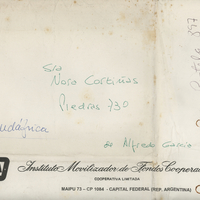 Sra
Nora Cortiñas
Piedras 730
de Alfredo García
Instituto Movilizador de Fondos Coopera
COOPERATIVA LIMITADA
MAIPU 73 - CP 1084 - CAPITAL FEDERAL (REP. ARGENTINA)